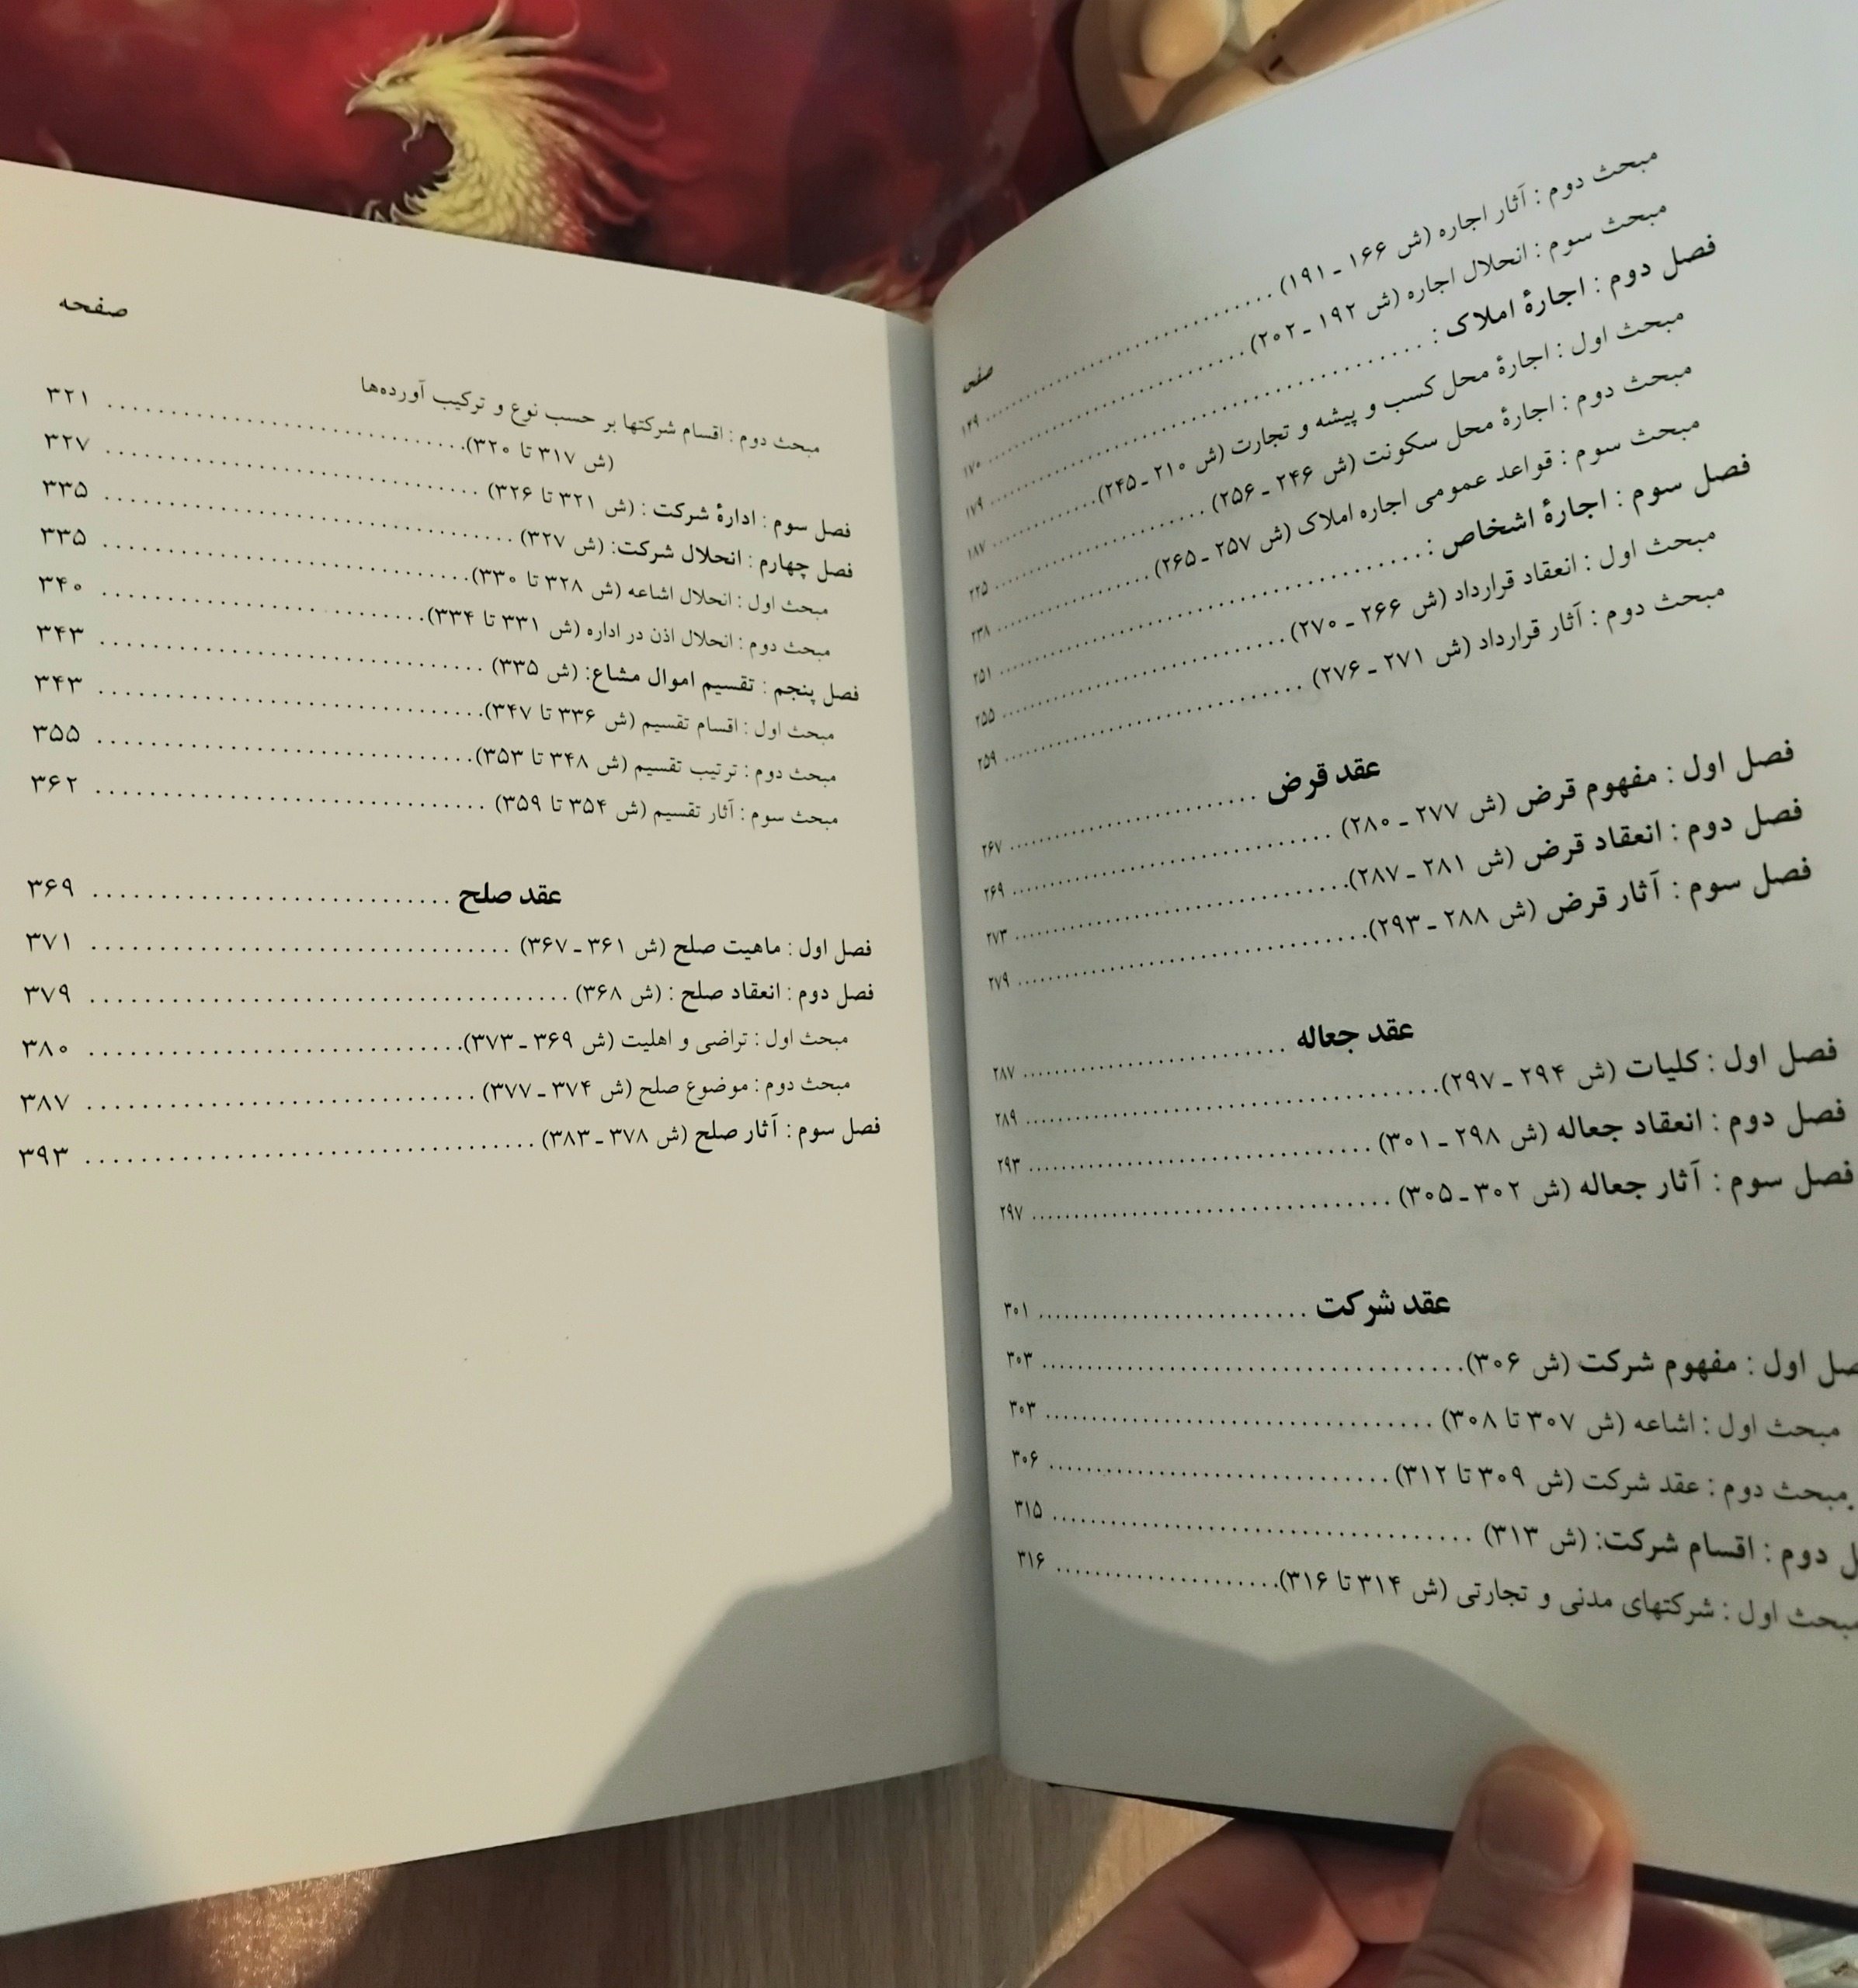 صفحه
مبحث دوم : آثار اجاره (ش ۱۶۶ ـ ۱۹۱) ........ ۱۲۹
مبحث سوم : انحلال اجاره (ش ۱۹۲ ـ ۲۰۲) ........ ۱۷۰
فصل دوم : اجارهٔ املاک : ........ ۱۷۹
مبحث اول : اجارهٔ محل کسب و پیشه و تجارت (ش ۲۱۰ ـ ۲۴۵) ........ ۱۸۷
مبحث دوم : اجارهٔ محل سکونت (ش ۲۴۶ ـ ۲۵۶) ........ ۲۲۵
مبحث سوم : قواعد عمومی اجاره املاک (ش ۲۵۷ ـ ۲۶۵) ........ ۲۳۸
فصل سوم : اجارهٔ اشخاص : ........ ۲۵۱
مبحث اول : انعقاد قرارداد (ش ۲۶۶ ـ ۲۷۰) ........ ۲۵۵
مبحث دوم : آثار قرارداد (ش ۲۷۱ ـ ۲۷۶) ........ ۲۵۹
عقد قرض ........ ۲۶۷
فصل اول : مفهوم قرض (ش ۲۷۷ ـ ۲۸۰) ........ ۲۶۹
فصل دوم : انعقاد قرض (ش ۲۸۱ ـ ۲۸۷) ........ ۲۷۳
فصل سوم : آثار قرض (ش ۲۸۸ ـ ۲۹۳) ........ ۲۷۹
عقد جعاله ........ ۲۸۷
فصل اول : کلیات (ش ۲۹۴ ـ ۲۹۷) ........ ۲۸۹
فصل دوم : انعقاد جعاله (ش ۲۹۸ ـ ۳۰۱) ........ ۲۹۳
فصل سوم : آثار جعاله (ش ۳۰۲ ـ ۳۰۵) ........ ۲۹۷
عقد شرکت ........ ۳۰۱
صل اول : مفهوم شرکت (ش ۳۰۶) ........ ۳۰۳
مبحث اول : اشاعه (ش ۳۰۷ تا ۳۰۸) ........ ۳۰۳
مبحث دوم : عقد شرکت (ش ۳۰۹ تا ۳۱۲) ........ ۳۰۶
ل دوم : اقسام شرکت: (ش ۳۱۳) ........ ۳۱۵
مبحث اول : شرکتهای مدنی و تجارتی (ش ۳۱۴ تا ۳۱۶) ........ ۳۱۶
صفحه
مبحث دوم : اقسام شرکتها بر حسب نوع و ترکیب آورده‌ها
(ش ۳۱۷ تا ۳۲۰) ........ ۳۲۱
فصل سوم : ادارهٔ شرکت : (ش ۳۲۱ تا ۳۲۶) ........ ۳۲۷
فصل چهارم : انحلال شرکت: (ش ۳۲۷) ........ ۳۳۵
مبحث اول : انحلال اشاعه (ش ۳۲۸ تا ۳۳۰) ........ ۳۳۵
مبحث دوم : انحلال اذن در اداره (ش ۳۳۱ تا ۳۳۴) ........ ۳۴۰
فصل پنجم : تقسیم اموال مشاع: (ش ۳۳۵) ........ ۳۴۳
مبحث اول : اقسام تقسیم (ش ۳۳۶ تا ۳۴۷) ........ ۳۴۳
مبحث دوم : ترتیب تقسیم (ش ۳۴۸ تا ۳۵۳) ........ ۳۵۵
مبحث سوم : آثار تقسیم (ش ۳۵۴ تا ۳۵۹) ........ ۳۶۲
عقد صلح ........ ۳۶۹
فصل اول : ماهیت صلح (ش ۳۶۱ ـ ۳۶۷) ........ ۳۷۱
فصل دوم : انعقاد صلح : (ش ۳۶۸) ........ ۳۷۹
مبحث اول : تراضی و اهلیت (ش ۳۶۹ ـ ۳۷۳) ........ ۳۸۰
مبحث دوم : موضوع صلح (ش ۳۷۴ ـ ۳۷۷) ........ ۳۸۷
فصل سوم : آثار صلح (ش ۳۷۸ ـ ۳۸۳) ........ ۳۹۳